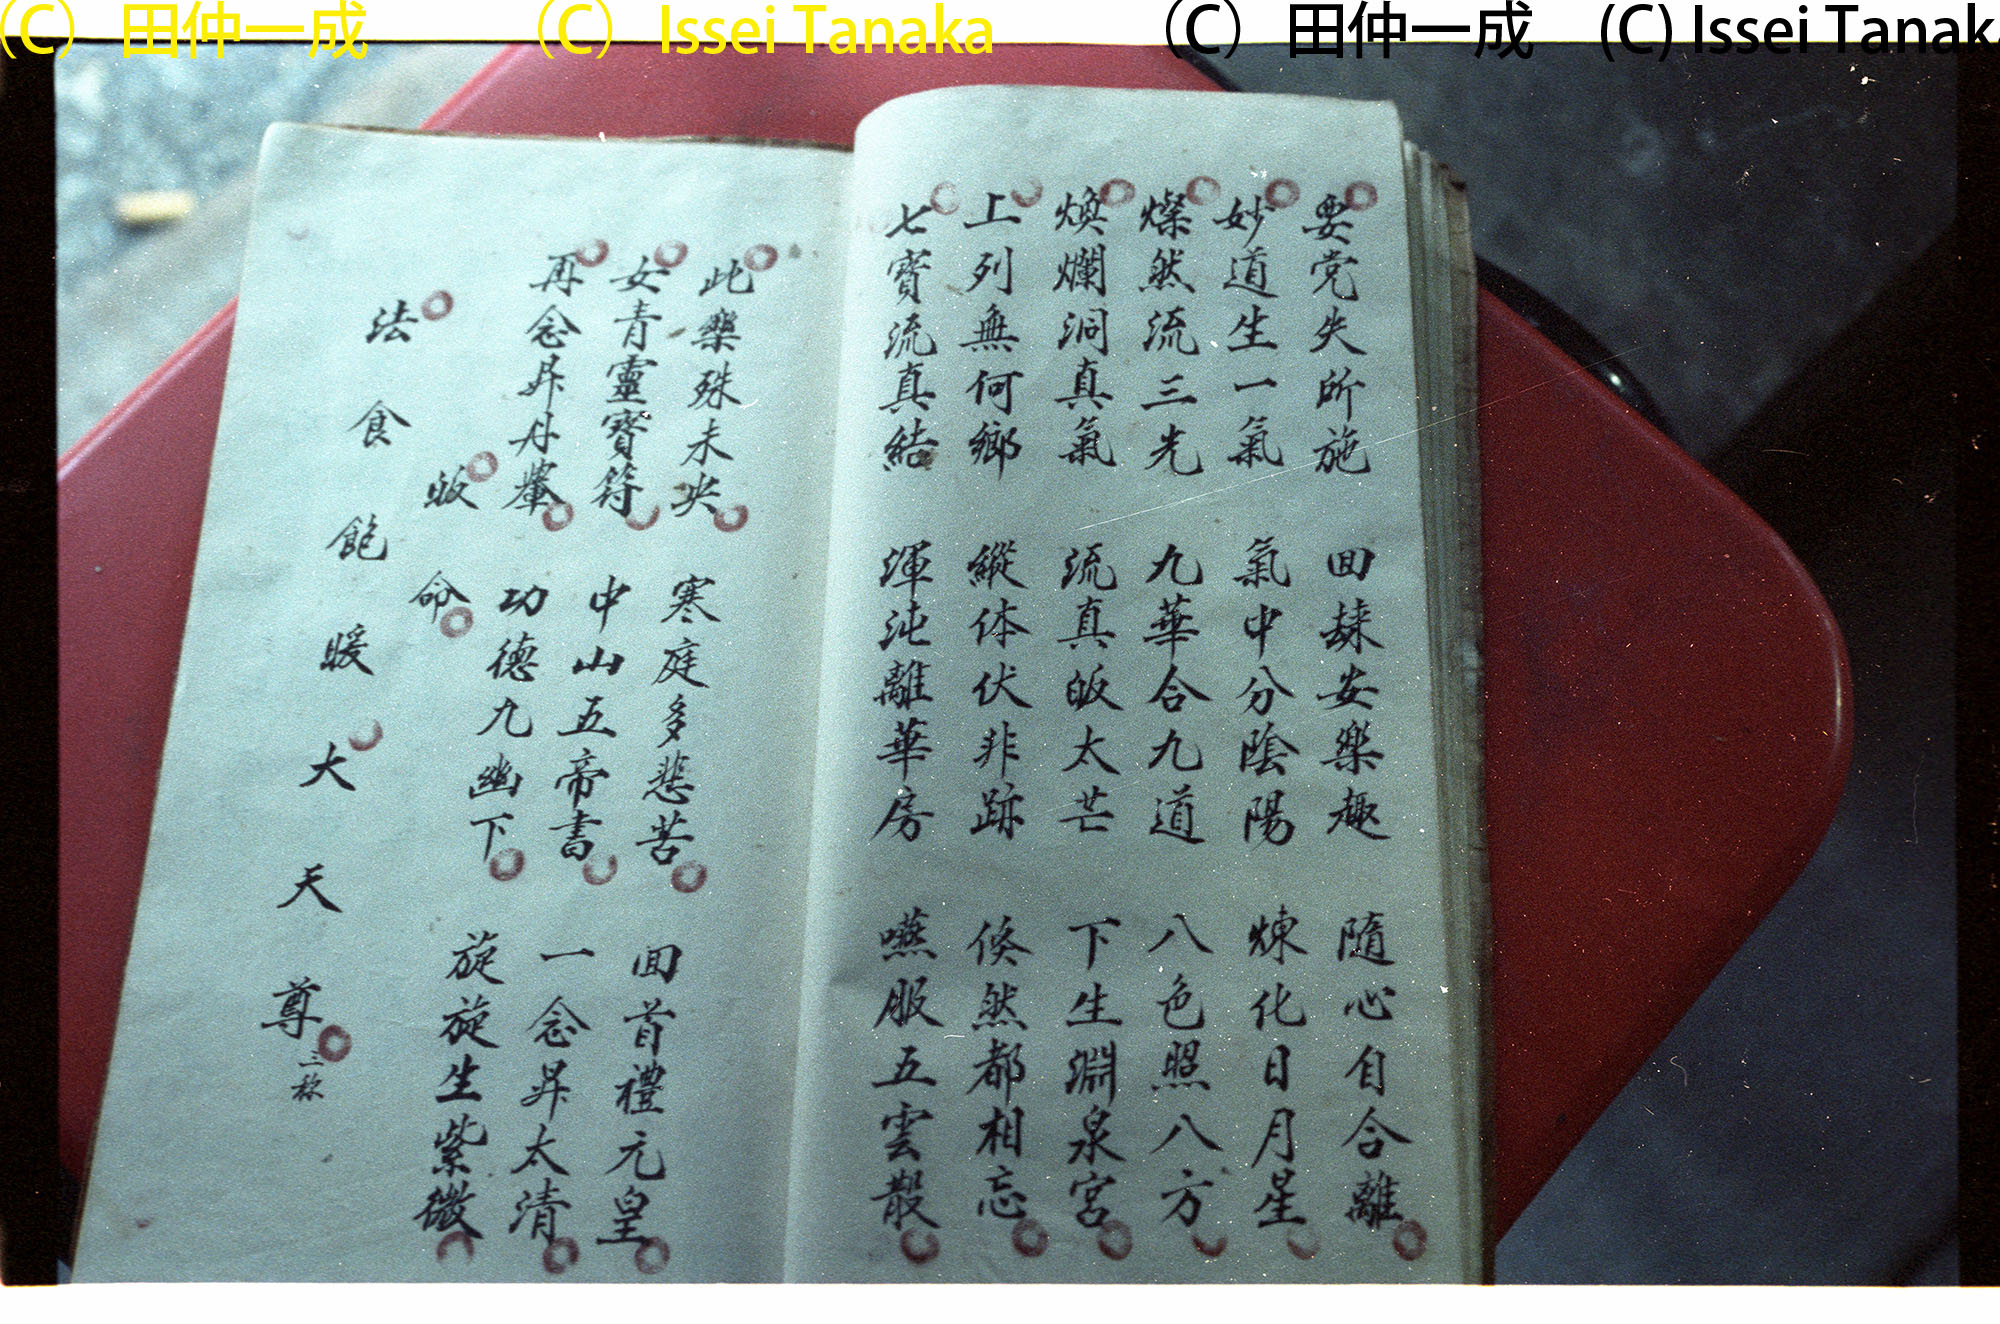 （C） 田仲一成 （C） Issei Tanaka （C） 田仲一成 (C) Issei Tanaka
要党失所施 回球安樂趣 隨心自合離
妙道生一氣 氣中分陰陽 煉化日月星
燦然流三光 九華合九道 八色照八方
煥爛洞真氣 流真皈太芒 下生淵泉宮
上列無何鄉 縱体伏非跡 倏然都相忘
七寳流真結 渾沌離華房 嚥服五雲散
此樂殊未央 寒庭多悲苦 回首禮元皇
女青靈寳符 中山五帝書 一念昇太清
再念昇丹輦 功德九幽下 旋旋生紫微
皈命
法食飽暖大天尊 三称